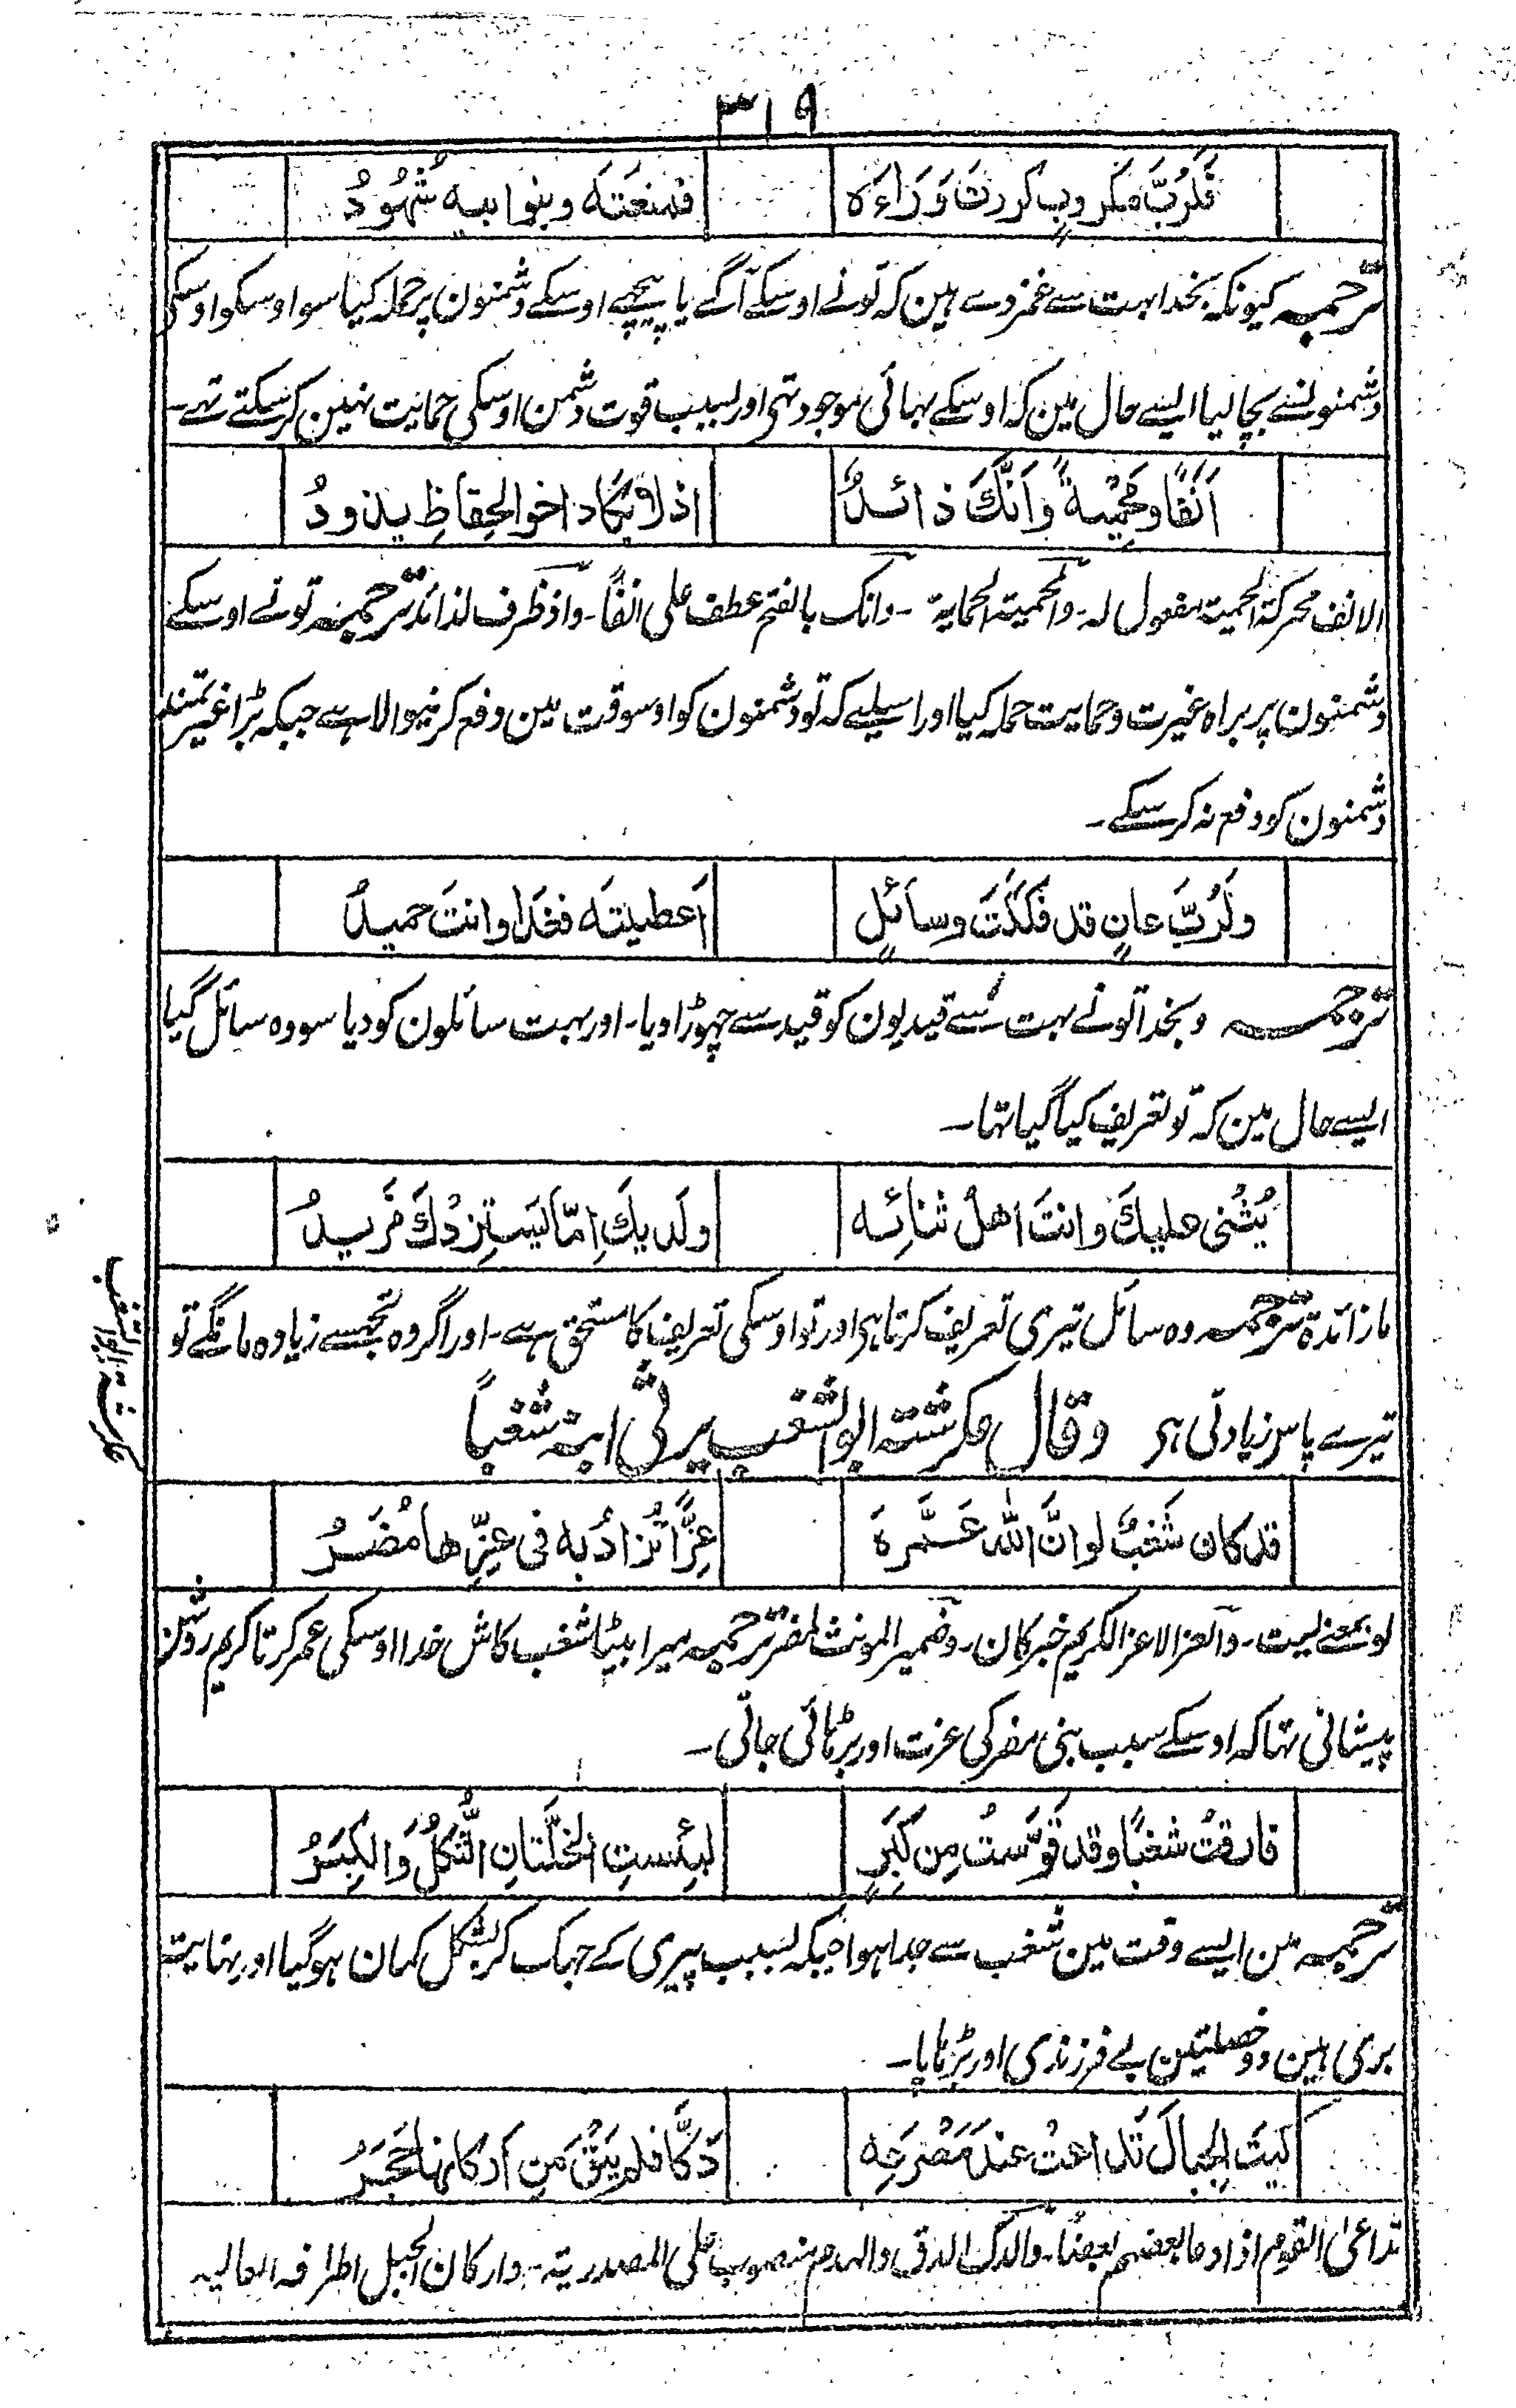 ٣١٩
فَلَرُبَّ مَكروبٍ كررتَ وَرَاءَه فمنعتَه وبنوا ابيه شُهُودُ
ترجمہ کیونکہ بخدا بہت سے غمزدے ہین کہ تونے اوسکے آگے یا پیچھے اوسکے دشمنون پر حملہ کیا سو اوسکو اوسکے
دشمنونسے بچالیا ایسے حال مین کہ اوسکے بہائی موجود تھی اور بسبب قوت دشمن اوسکی حمایت نہین کرسکتے تھے۔
اَنَفًا ومَحْمِيةً وَاَنَّكَ ذائدٌ اذلا يكاد اخو الحِفاظِ يذودُ
الانف محرکۃ الحمیت مفعول لہ۔ والمحمیۃ الحمایۃ ۔ وانک بالفتح عطف علی انفًا۔ واذ ظرف لذائد ترجمہ تونے اوسکے
دشمنون پر براہ غیرت وحمایت حملہ کیا اور اسلیے کہ تو دشمنون کو اوسوقت مین دفع کرنیوالا ہے جبکہ بڑا غیرتمند
دشمنون کو دفع نہ کرسکے۔
ولَرُبَّ عانٍ قد فككتَ وسائلٍ اَعطيتَه فغدا وانتَ حميدُ
ترجمہ وبخدا تونے بہت سے قیدیون کو قید سے چہوڑا دیا۔ اور بہت سائلون کو دیا سو وہ سائل گیا
ایسے حال مین کہ تو تعریف کیا گیا تہا۔
يُثني عليكَ وانتَ اهلُ ثنائِه ولديكَ اِمّا يَستزِدْكَ مَزيدُ
ما زائدۃ ترجمہ وہ سائل تیری تعریف کرتا ہی اور تو اوسکی تعریف کا مستحق ہے۔ اور اگر وہ تجھسے زیادہ مانگے تو
تیرے پاس زیادتی ہی وقال عکرشتہ ابو الشغب یرثی ابنہ شغباً
عکرشتہ ابو الشغب
قد كان شَغبٌ لو انَّ الله عَمَّرهَ عِزًّا تُزادُ به في عِزِّها مُضَرُ
لو بمعنے لیت۔ والعز الاعز الکریم خبر کان۔ وضمیر المونث لمضر ترجمہ میرا بیٹا شغب کاش خدا اوسکی عمر کرتا کریم روشن
پیشانی تہا کہ اوسکے سبب بنی مضر کی عزت اور بڑہائی جاتی۔
فارقتُ شغبًا وقد قَوَّستُ مِن كِبَرٍ لبِئستِ الخَلَّتانِ الثُّكلُ وَالكِبَرُ
ترجمہ مین ایسے وقت مین شغب سے جدا ہوا جبکہ بسبب پیری کے جہک کر بشکل کمان ہوگیا اور نہایت
بری ہین دو خصلتین بے فرزندی اور بڑہاپا۔
لیتَ الجبالَ تداعتْ عندَ مَصْرَعِه دَكًّا فلم يَبْقَ مَن اَركانها حَجَرُ
تداعی القوم اذا دعا بعضہم بعضًا۔ والدک الدق والہدم منصوب علی المصدریۃ۔ وارکان الجبل اطرافہ العالیہ